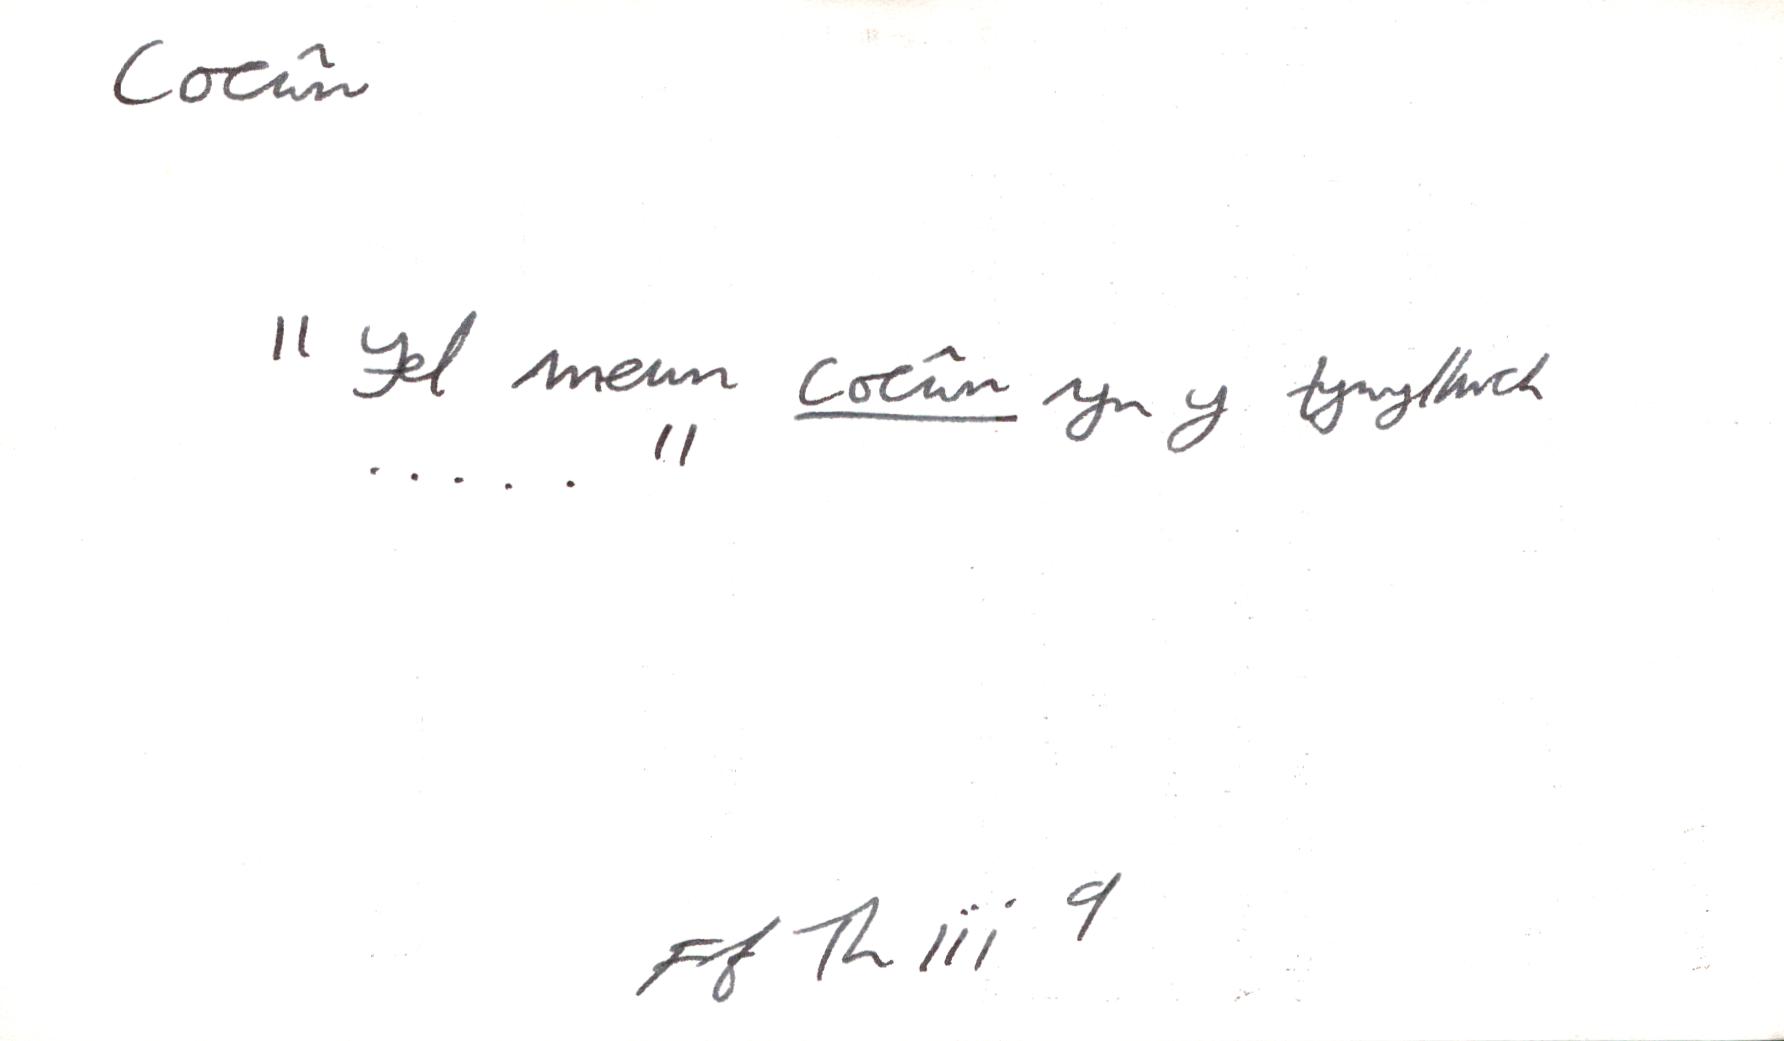 Cocŵn
" Fel mewn cocŵn yn y tywyllwch
. . . . . "
Ff Th iii 9